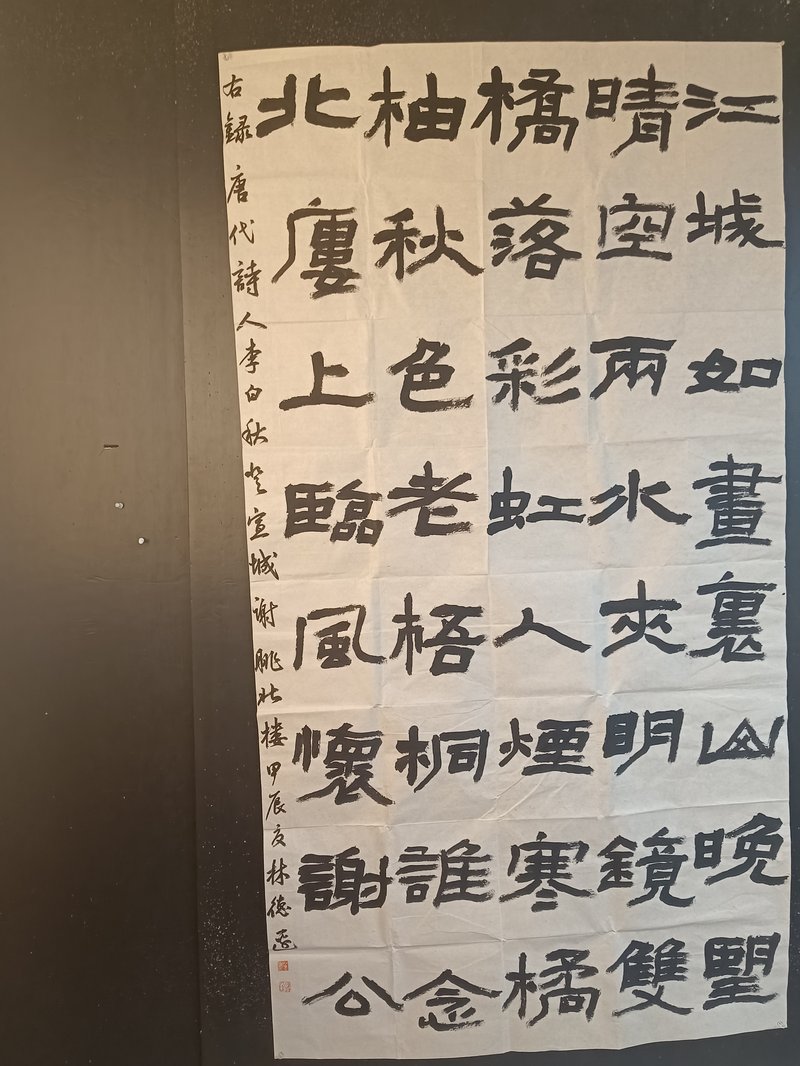 江城如畫裏山晚朢
晴空兩水夾明鏡雙
橋落彩虹人煙寒橘
柚秋色老梧桐誰念
北廔上臨風懷謝公
右録唐代詩人李白秋登宣城謝脁北楼甲辰夏林德志